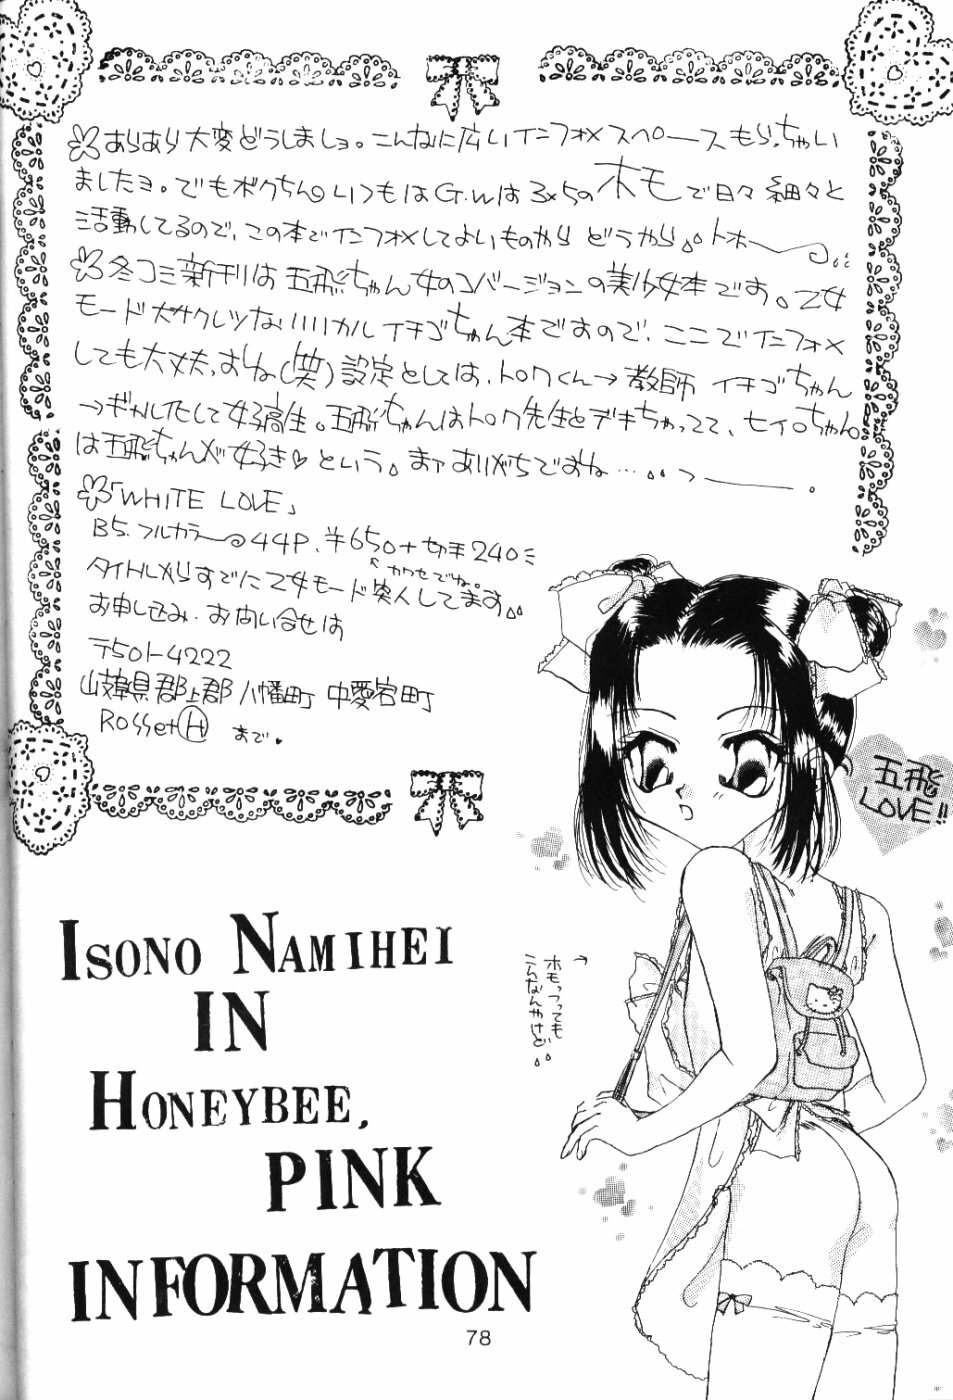 あらあら大変どうしましょ。こんなに広いインフォメスペースもらっちゃい
ましたヨ。でもボクちん いつもはG.Wは3×5のホモで日々細々と
活動してるので、この本でインフォメしてよいものやら どうやら トホー
冬コミ新刊は五飛ちゃん女のコバージョンの美少女本です。乙女
モード大サクレツなリリカル イチゴちゃん本ですので、ここでインフォメ
しても大丈夫、よね(笑)設定としては、トロワくん→教師 イチゴちゃん
→ギャル化して女子高生。五飛ちゃんはトロワ先生とデキちゃってて、セイロちゃん
は五飛ちゃんが好き♡という。まァありがちですね…
「WHITE LOVE」
B5.フルカラー 44P、¥650+切手240
カワセでね。
タイトルからすでに乙女モード突入してます。
お申し込み・お問い合せは
〒501-4222
岐阜県郡上郡八幡町 中愛宕町
Rosset Ⓗ まで。
五飛
LOVE!!
ホモっつっても
こんなんやけど
ISONO NAMIHEI
IN
HONEYBEE.
PINK
INFORMATION
78